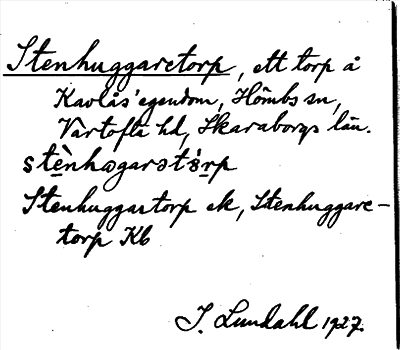 Stenhuggaretorp, ett torp å
Kavlås' egendom, Hömbs sn,
Vartofta hd, Skaraborgs län.
stènhogarətårp
Stenhuggartorp ek, Stenhuggare-
torp Kb
I. Lundahl 1927.